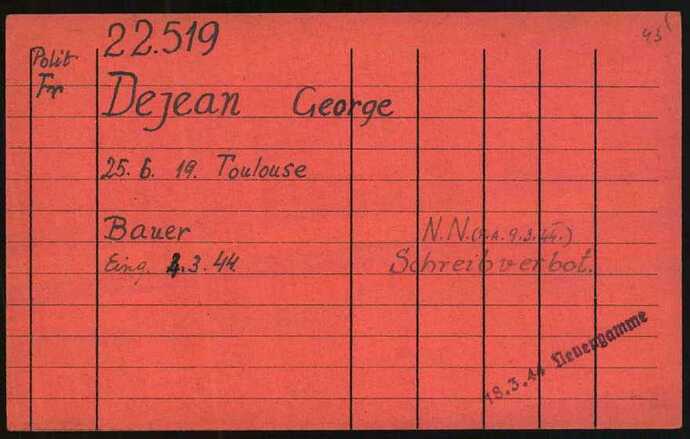 43
22.519
Polit.
Fr.
Dejean George
25. 6. 19. Toulouse
Bauer N.N. (9.3.44.)
Eing. .3.44. Schreibverbot.
18.3.44 Neuengamme